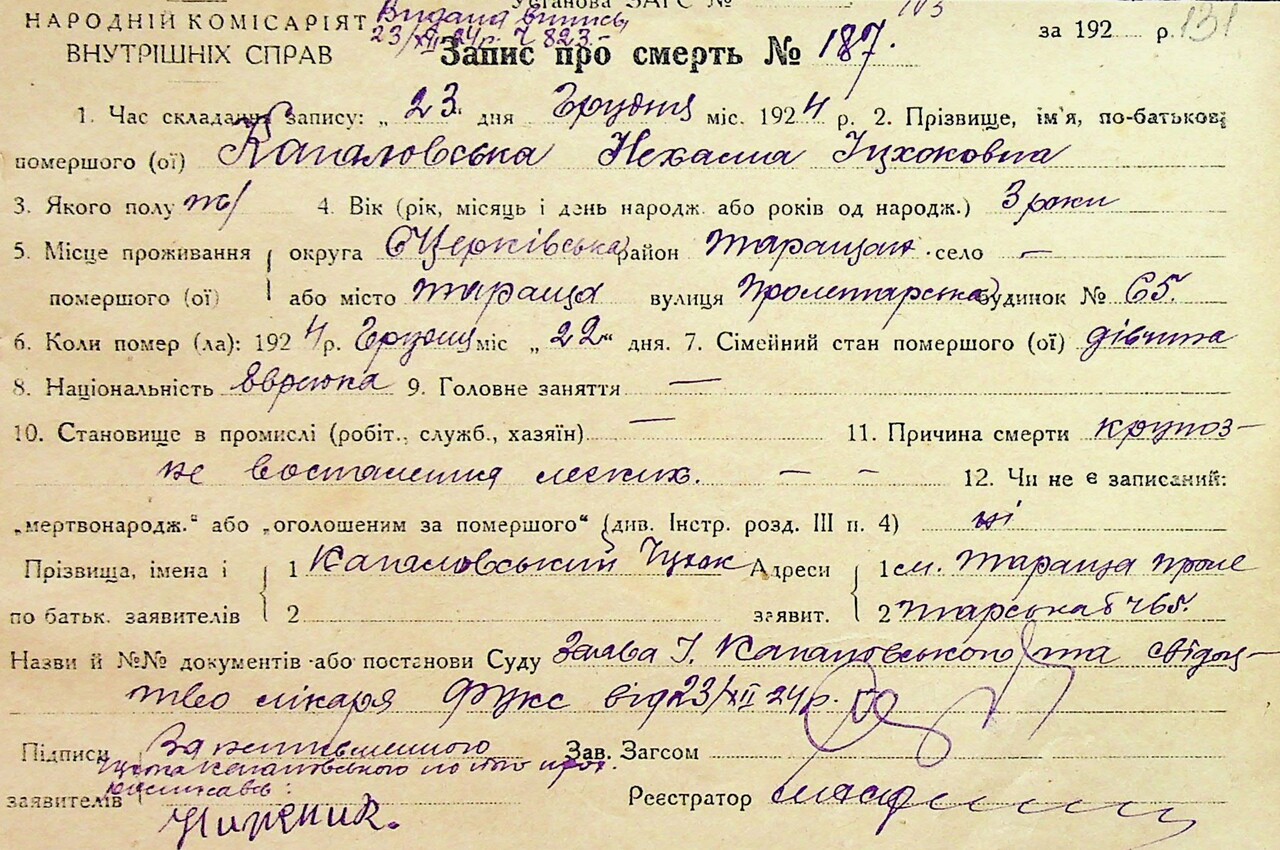 Установа ЗАГС № 103
НАРОДНІЙ КОМІСАРІЯТ
ВНУТРІШНІХ СПРАВ
Видана випись
23/XII 24р. Ч 823.-
Запис про смерть № 187.
за 192 р. 131
1. Час складання запису: „23“ дня Грудня міс. 1924 р. 2. Прізвище, ім'я, по-батькові
помершого (ої) Капаловська Нехама Іцхоковна
3. Якого полу ж/ 4. Вік (рік, місяць і день народж. або років од народж.) 3 роки
5. Місце проживання округа БЦерківська район Таращан. село —
помершого (ої) або місто Тараща вулиця Пролетарська будинок № 65.
6. Коли помер (ла): 1924 р. Грудня міс „22“ дня. 7. Сімейний стан помершого (ої) дівчина
8. Національність Єврейка 9. Головне заняття —
10. Становище в промислі (робіт., служб., хазяїн) — 11. Причина смерти крупоз-
не воспаления легких. — — 12. Чи не є записаний:
„мертвонародж.“ або „оголошеним за помершого“ (див. Інстр. розд. III п. 4) ні
Прізвища, імена і 1 Капаловський Іцхок Адреси 1 см. Тараща проле
по батьк. заявителів 2 заявит. 2 тарська б ч 65.
Назви й №№ документів або постанови Суду Заява І. Капаловського та свідоц-
тво лікаря Фукс від 23/XII 24 р.
Підписи За неписьменного Зав. Загсом
Іцхока Капаловського по його прох.
заявителів росписавсь: Реєстратор